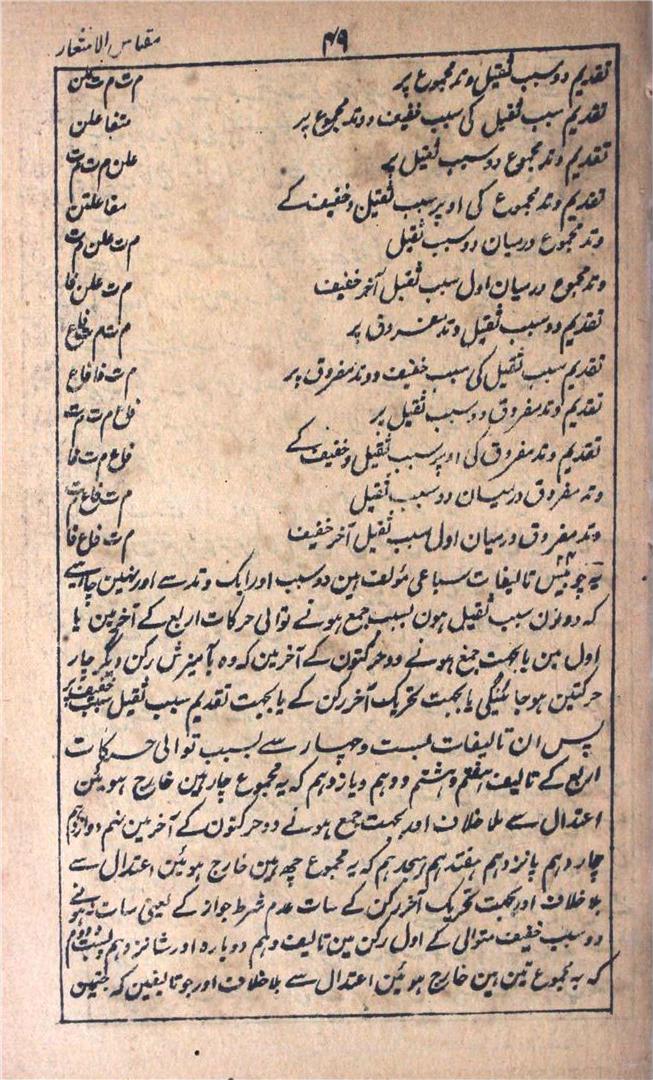 ۴۹
مقیاس الاشعار
تقدیم دو سبب ثقیل وتد مجموع پر م ت م ت علن
تقدیم سبب ثقیل کی سبب خفیف و وتد مجموع پر متفا علن
تقدیم وتد مجموع دو سبب ثقیل پر علن م ت م ت
تقدیم وتد مجموع کی اوپر سبب ثقیل و خفیف کے مفا علتن
وتد مجموع درمیان دو سبب ثقیل م ت علن م ت
وتد مجموع درمیان اول سبب ثقیل آخر خفیف م ت علن فا
تقدیم دو سبب ثقیل وتد مفروق پر م ت م ت فاع
تقدیم سبب ثقیل کی سبب خفیف و وتد مفروق پر م ت فا فاع
تقدیم وتد مفروق دو سبب ثقیل پر فاع م ت م ت
تقدیم وتد مفروق کی اوپر سبب ثقیل و خفیف کے فاع م ت فا
وتد مفروق درمیان دو سبب ثقیل م ت فاع م ت
وتد مفروق درمیان اول سبب ثقیل آخر خفیف م ت فاع فا
یہ چوبیس ۲۴ تالیفات سباعی مؤلف ہین دو سبب اور ایک وتد سے اور نہین چاہیے
کہ دونون سبب ثقیل ہون بسبب جمع ہونے توالی حرکات اربع کے آخر مین یا
اول مین یا بجہت جمع ہونے دو حرکتون کے آخر مین کہ وہ بآمیزش رکن دیگر چار
حرکتین ہو جائینگی یا بجہت تحریک آخر رکن کے یا بجہت تقدیم سبب ثقیل سبب خفیف پر
پس ان تالیفات بست و چہار سے بسبب توالی حرکات
اربع کے تالیف ہفتم و ہشتم و دہم و یازدہم کہ یہ مجموع چار ہین خارج ہوئین
اعتدال سے بلا خلاف اور بجہت جمع ہونے دو حرکتون کے آخر مین نہم دوازدہم
چاردہم پانزدہم ہفتدہم ہیجدہم کہ یہ مجموع چھ ہین خارج ہوئین اعتدال سے
بلا خلاف اور بجہت تحریک آخر رکن کے سات عدم شرط جواز کے یعنی سات نہونے
دو سبب خفیف متوالی کے اول رکن مین تالیف دہم دوبارہ اور شانزدہم و بست دوم
کہ یہ مجموع تین ہین خارج ہوئین اعتدال سے بلا خلاف اور جو تالیفین کہ جنمین